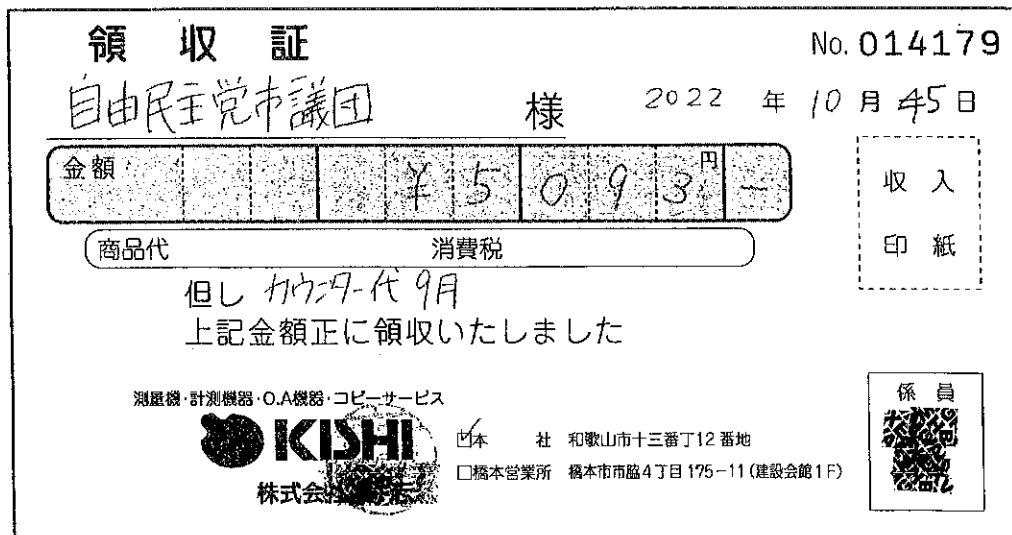 領収証
No. 014179
自由民主党市議団 様
2022 年 10 月 日
金額 ¥5093円-
商品代 消費税
収入
印紙
但し カウンター代 9月
上記金額正に領収いたしました
測量機・計測機器・O.A機器・コピーサービス
KISHI
株式会
☑本 社 和歌山市十三番丁12番地
□橋本営業所 橋本市市脇4丁目175-11(建設会館1F)
係員